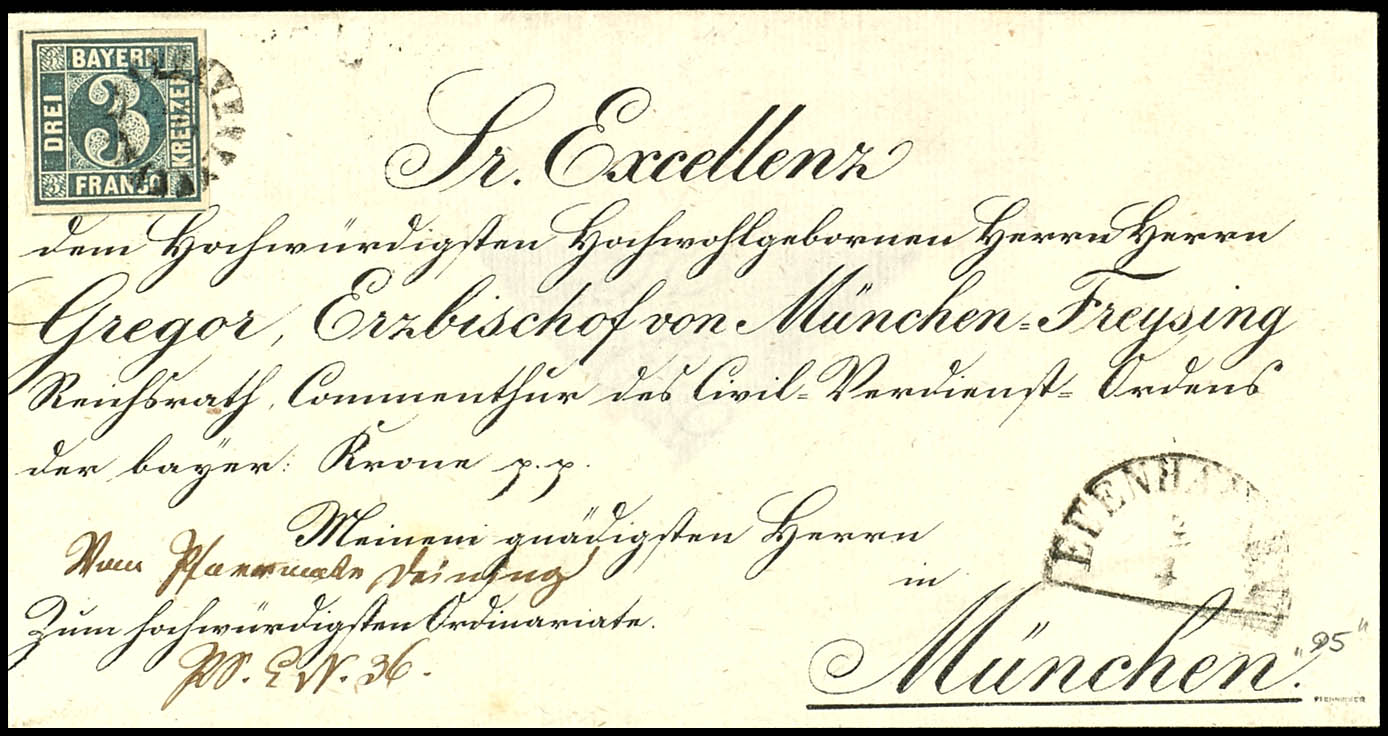 BAYERN
DREI
3
KREUZER
FRANCO
Sr. Excellenz
dem Hochwürdigsten Hochwohlgebornen Herrn Herrn
Gregor, Erzbischof von München-Freysing
Reichsrath, Commenthur des Civil-Verdienst-Ordens
der bayer: Krone p.p.
Meinem gnädigsten Herrn
Vom Pfarramte Deining
in
Zum hochwürdigsten Ordinariate.
E. N. 36.
München.
"95"